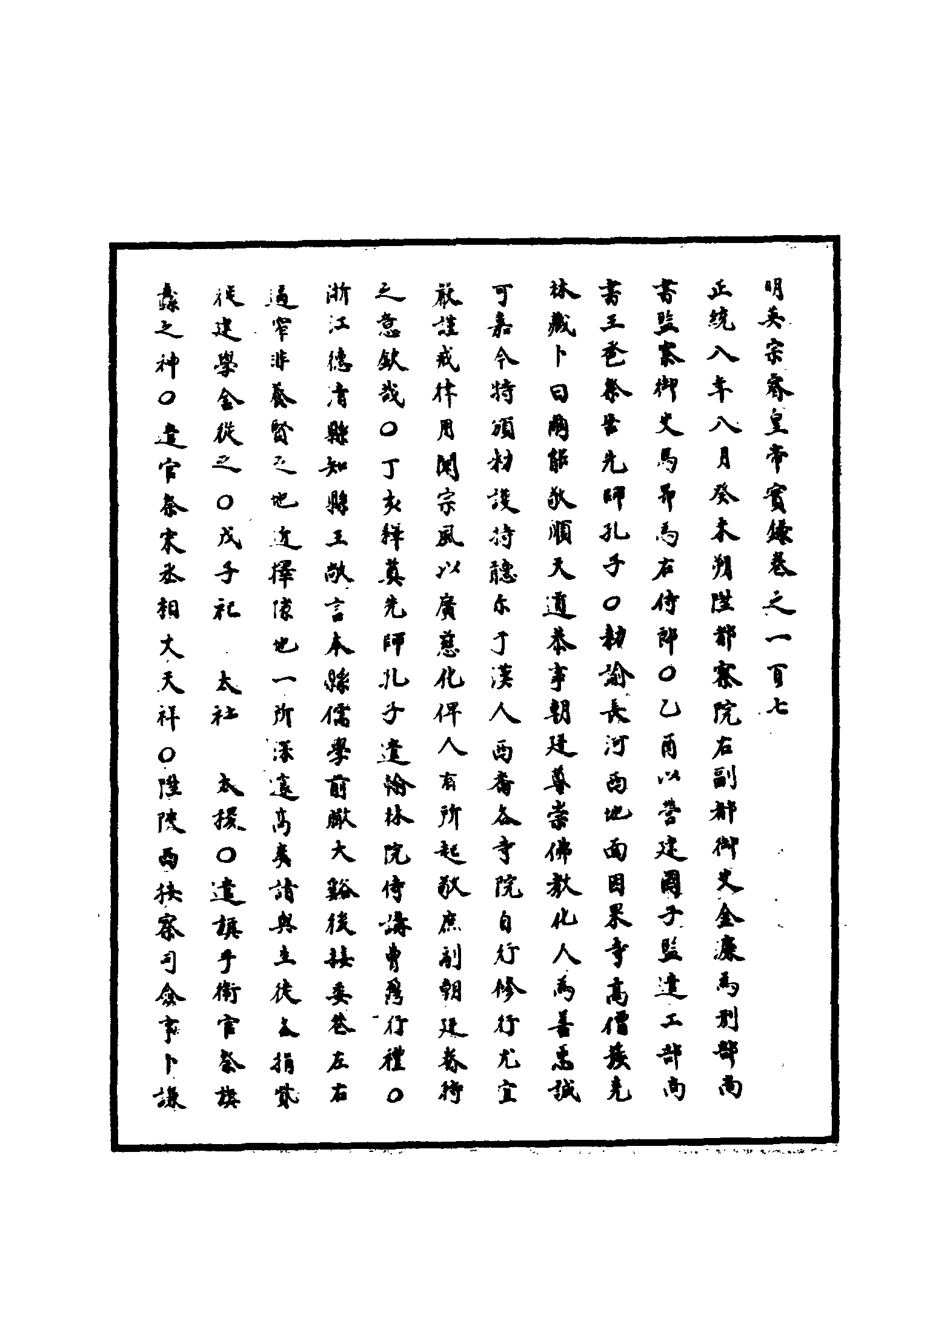 明英宗睿皇帝實錄卷之一百七
正統八年八月癸未朔陞都察院右副都御史金濂為刑部尚
書監察御史馬昂為右侍郎○乙酉以營建國子監遣工部尚
書王卺祭告先師孔子○勑諭長河西地面因果寺高僧綏克
林藏卜曰爾能敬順天道恭事朝廷尊崇佛教化人為善忠誠
可嘉今特頒勑護持聽尓于漢人西番各寺院自行修行尤宜
嚴謹戒律用闡宗風以廣慈化俾人有所起敬庶副朝廷眷待
之意欽哉○丁亥釋奠先師孔子遣翰林院侍講曹鼐行禮○
浙江德清縣知縣王敞言本縣儒學前瞰大谿後接委巷左右
逼窄非養賢之地近擇隙地一所深遠高爽請與生徒各捐貲
徙建學舍從之○戊子祀 太社 太稷○遣旗手衛官祭旗
纛之神○遣官祭宋丞相文天祥○陞陝西按察司僉事卜謙